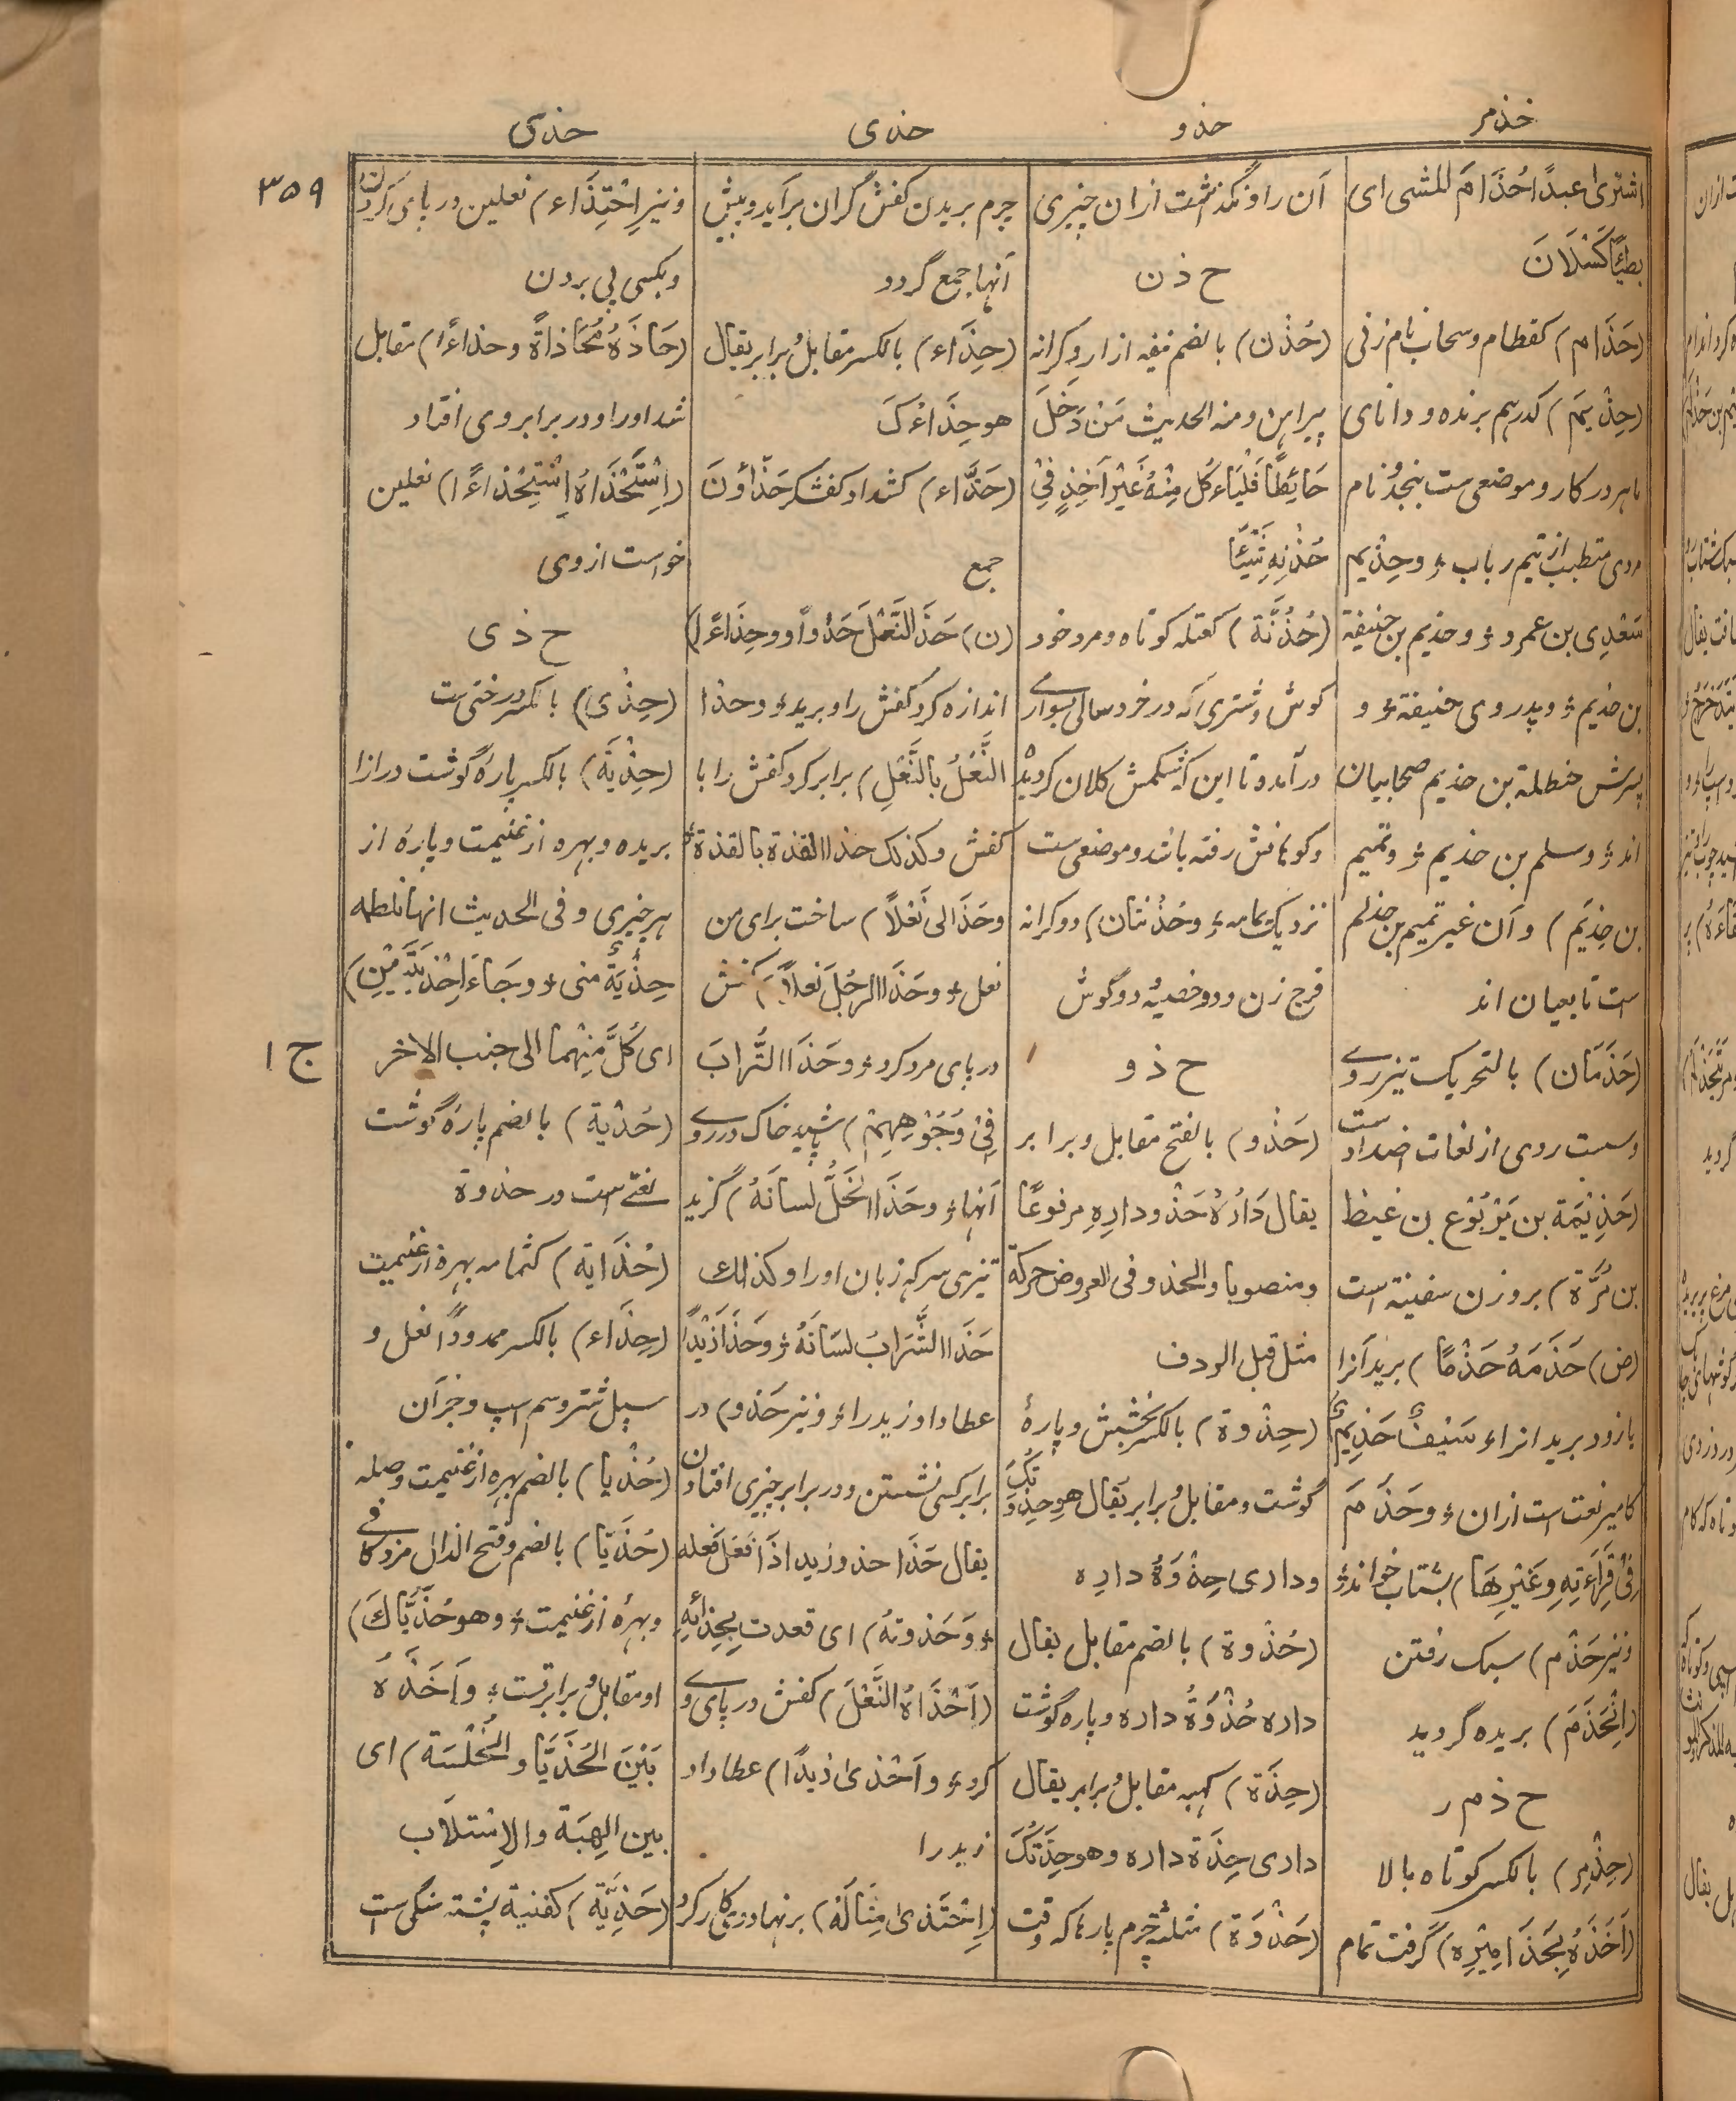 خذمر
حذو
حذی
حذی
۳۵۹
اشتریٰ عبدًا حُذَامَ المشی ای
بطیْئًا کَسْلَانَ
(حَذَام) کقطام و سحاب نام زنی
(حِذْیَم) کدرہم برندہ و دانای
ماہر در کار و موضعی ست بنجدو نام
مردی متطبب از تیم رباب ؤ وحِذْیم
سَعْدِی بن عمرو ؤ و حذیم بن حنیفۃ
بن حذیم ؤ و پدر وی حنیفۃ ؤ و
پسرش حنظلۃ بن حذیم صحابیان
اند ؤ و سلم بن حذیم ؤ وتمیم
بن حِذْیَم) و آن غیر تمیم بن حذلم
است تابعیان اند
(حَذَمَان) بالتحریک تیزروے
وسست روی از لغات اضداد ست
(حَذِیْمَۃ بن یَرْبُوْع بن غیظ
بن مُرَّۃ) بر وزن سفینۃ است
(ض) حَذَمَہُ حَذْمًا) برید آنرا
یا زود برید انرا ؤ سَیْفٌ حَذِیْمٌ
کامیر نعت است ازان ؤ وحَذَمَ
فِیْ قِرَاءَتِہِ وغَیْرِھَا) بشتاب خواند ؤ
ونیز حَذْم) سبک رفتن
(اِنْحَذَمَ) بریدہ گردید
ح ذ م ر
(حِذْمِر) بالکسر کوتاہ بالا
(اَخَذَہُ بِحَذَامِیْرِہ) گرفت تمام
آن را و نگذاشت ازان چیزی
ح ذ ن
(حُذْن) بالضم نیفہ ازار و کرانہ
پیراہن ومنہ الحدیث مَنْ دَخَلَ
حَائِطًا فَلْیَاءکُل مِنْہُ غَیْرَ آخِذٍ فِیْ
حُذْنِہِ شَیْئًا
(حُذُنَّۃ) کعتلہ کوتاہ و مرد خورد
گوش و شتری کہ در خردسالی بسوارے
در آمدہ تا این کہ شکمش کلان گردیدہ
وکوہانش رفتہ باشد و موضعی ست
نزدیک یمامہ ؤ وحُذُنَّتان) دو کرانہ
فرج زن و دو خصیہ و دو گوش
ح ذ و
(حَذْو) بالفتح مقابل و برابر
یقال دَارُہُ حَذْو دارِہِ مرفوعًا
ومنصوبا والحذو فی العروض حرکۃ
مثل قبل الردف
(حِذْوۃ) بالکسر بخشش و پارۂ
گوشت و مقابل و برابر یقال ھو حِذْوَتُکَ
وداری حِذْوَۃُ دارِہ
(حُذْوۃ) بالضم مقابل یقال
دارہ حُذْوَۃُ دارہ و پارہ گوشت
(حِذَۃ) کہبہ مقابل و برابر یقال
داری حِذَۃ دارہ وھو حِذَتُکَ
(حَذْوَۃ) مثلثۃ چرم پارہا کہ وقت
چرم بریدن کفش گران برآید و بیش
آنہا جمع گردد
(حِذَاء) بالکسر مقابل و برابر یقال
ھو حِذَاءُکَ
(حَذَّاء) کشداد کفشگر حَذَّاؤنَ
جمع
(ن) حَذَا النَّعْلَ حَذْواً و وحِذَاءًا)
اندازہ کرد کفش را و برید ؤ وحذا
النَّعْلَ بالنَّعْلِ) برابر کرد کفش را با
کفش وکذلک حذا القذۃ بالقذۃ ؤ
وحَذَا لی نَعْلاً) ساخت برای من
نعل ؤ وحَذَا الرجُلَ نَعلاً) کفش
در پای مرد کرد ؤ وحَذَا التُّرابَ
فِیْ وُجُوْھِہِمْ) پاشید خاک در روے
آنہا ؤ وحَذَا الخَلُّ لسانَہُ) گزید
تیزی سرکہ زبان او را وکذلک
حَذَا الشَّرَابُ لسَانَہُ ؤ وحَذَا زَیْدًا
عطا داد زید را ؤ ونیز حَذْو) در
برابر کسی نشستن و در برابر چیزی افتادن
یقال حَذَا حذو زید اذَا فَعَلَ فعلہ
ؤ وحَذوتہُ) ای قعدت بِحِذَائِہِ
(اَحْذَاہُ النَّعْلَ) کفش در پای وے
کرد ؤ واَحْذیٰ زیدًا) عطا داد
زید را
(اِحْتَذیٰ مِثَالَہُ) بر نہاد وی کار کرد
ونیز اِحْتِذَاء) نعلین در پای کردن
وبکسی پی بردن
(حَاذَہُ مُحَاذاۃً وحذاءًا) مقابل
شد او را و در برابر وی افتاد
(اِسْتَحْذَاہُ اِسْتِحْذاءًا) نعلین
خواست از وی
ح ذ ی
(حِذْی) بالکسر درختی ست
(حِذْیَۃ) بالکسر پارۂ گوشت درازا
بریدہ و بہرہ از غنیمت و پارۂ از
ہر چیزی وفی الحدیث انہا فاطمہ
حِذْیَۃٌ منی ؤ وجَاءَا حِذْیَتَیْنِ)
ای کُلَّ مِنْہُما الی جنب الاخر
ج ۱
(حُذْیۃ) بالضم پارۂ گوشت
لغتے است در حذوۃ
(حُذَایۃ) کثمامہ بہرہ از غنیمت
(حِذَاء) بالکسر ممدودًا نعل و
سپل شتر و سم اسپ و جز آن
(حُذْیا) بالضم بہرہ از غنیمت و صلہ
(حُذَیّا) بالضم وفتح الذال مزدگانے
وبہرہ از غنیمت ؤ وھو حُذَیَّاکَ)
او مقابل و برابر تست ؤ وأخَذَہُ
بَیْنَ الحُذَیَّا والخُلْسَۃ) ای
بین الھِبَۃ والاِسْتلَاب
(حَذِیَّۃ) کغنیۃ پشتہ سنگی ست